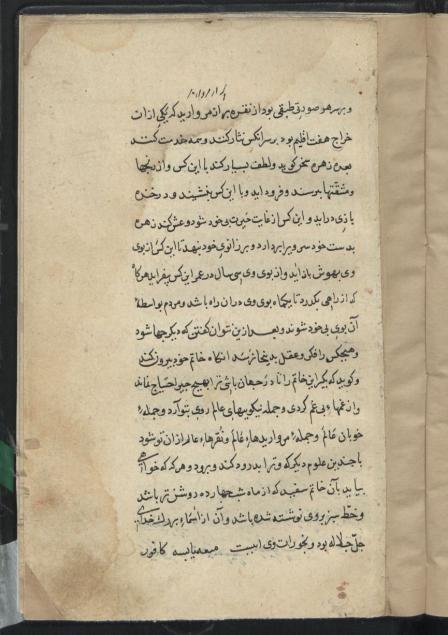 و بر سر هر صورتی طبقی بود از نقره پر از مروارید که یکی از ان
خراج هفت اقلیم بود بر سر انکس نثار کنند و همه خدمت کنند
بعده زهره سخن کوید و لطف بسیار کند با این کس و از رنجها
و مشقتها بپرسند و فرود اید و با این کس بنشیند و در خنده
بازی در اید و این کس از غایت حیرت بی خود شود و غش کند زهره
بدست خود سر ویرا بردارد و بر زانوی خود نهد تا این کس از بوی
وی بهوش باز اید و از بوی وی سی سال در عمر این کس بیفزاید هرکاه
که از راهی بگذرد تا یکماه بوی وی در ان راه باشد و مردم بواسطه
آن بوی بی خود شوند و بعد ازین نتوان کفتن که دیکر چها شود
و هیچکس را فکر و عقل بدینجا نرسد انکاه خاتم خود بیرون کند
و کوید که بگیر این خاتم را تا در جهان باشی ترا بهیچ چیز احتیاج نماند
و از غمها بی غم کردی و جمله نیکویهای عالم روی بتو آرد و جمله
خوبان عالم و جمله مرواریدها عالم و نقرهاء عالم ازان تو شود
با چندین علوم دیکر که و ترا بدرود کند و برود و هرکه که خواهی
بیاید بآن خاتم سفید که از ماه شب چهارده روشن تر باشد
و خطی سبز بروی نوشته شده باشد و آن از اسماء بزرك خدای
جل جلاله بود و بخورات وی اینست میعه یابسه کافور